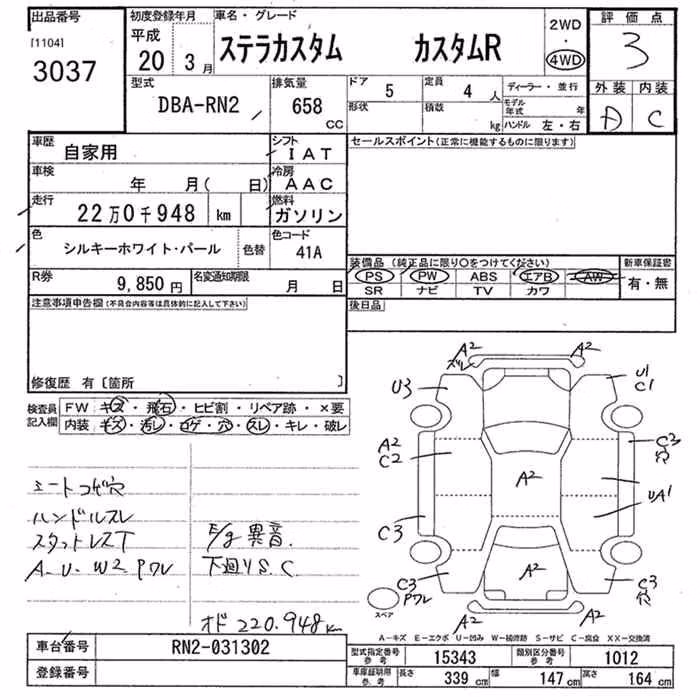 出品番号
[1104]
3037
初度登録年月
平成
20 3月
車名・グレード
ステラカスタム カスタムR
2WD
・
4WD
評価点
3
外装 内装
D C
型式
DBA-RN2
排気量
658
CC
ドア 5
定員 4 人
形状
積載 kg
ディーラー・並行
モデル年式 年
ハンドル 左・右
車歴 自家用
シフト IAT
車検 年 月( 日)
冷房 AAC
走行 22万0千948 km
燃料 ガソリン
色 シルキーホワイト・パール
色替
色コード 41A
R券 9,850円
名変通知期限 月 日
セールスポイント(正常に機能するものに限ります)
装備品 (純正品に限り○をつけてください)
PS PW ABS エアB AW
SR ナビ TV カワ
新車保証書
有・無
後日品
注意事項申告欄(不具合内容等は具体的に記入して下さい)
修復歴 有〔箇所 〕
検査員記入欄
FW キズ・飛石・ヒビ割・リペア跡・×要
内装 キズ・汚レ・コゲ・穴・スレ・キレ・破レ
シートコゲ穴
ハンドルスレ
スタットレスT
A.U.W2.Pワレ
E/g 異音.
下廻りS.C
オド 220.948km
A2 A2
ズレ
U3
U1
C1
A2
C2
C3
穴
A2
UA1
C3
C3
Pワレ
A2
C3
穴
A2 A2
スペア
A-キズ E-エクボ U-凹み W-補修跡 S-サビ C-腐食 XX-交換済
車台番号 RN2-031302
登録番号
型式指定番号 参考 15343
類別区分番号 参考 1012
車庫証明用 参考 長さ 339 cm 幅 147 cm 高さ 164 cm